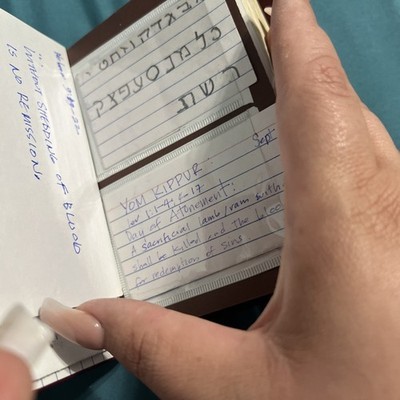 WITHOUT SHEDDING OF BLOOD
IS NO REMISSION.
בגדהוזחטי
כלמנסעפצק
רשת
Sept-
YOM KIPPUR:
Day of Atonement:
A sacrificial lamb/ram
shall be killed and the blood
for redemption of sins